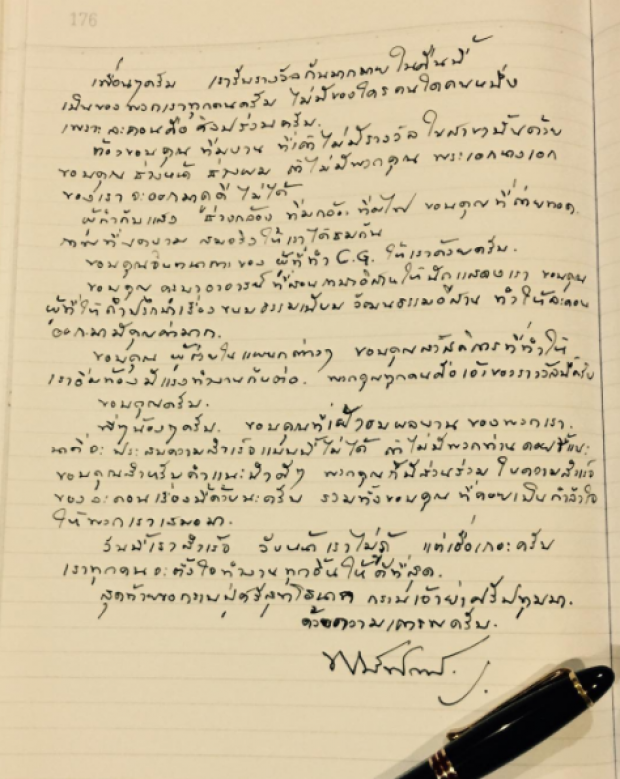 176
เพื่อนๆครับ เรารับรางวัลกันมากมาย ในคืนนี้
เป็นของพวกเราทุกคนครับ ไม่มีของใคร คนใดคนหนึ่ง
เพราะละครคือ ศิลปร่วมครับ.
ต้องขอบคุณ ทีมงาน ที่เค้าไม่มีรางวัล ในสาขานั้นด้วย
ขอบคุณ ช่างหน้า ช่างผม ถ้าไม่มีพวกคุณ พระเอกนางเอก
ของเรา จะออกมาดูดี ไม่ได้
ผู้กำกับแสง ช่างกล้อง ทีมกล้อง ทีมไฟ ขอบคุณที่ถ่ายทอด
ภาพที่งดงาม สมจริงให้เราได้ชมกัน
ขอบคุณจินตนาการของ ผู้ที่ทำ C.G. ให้เราด้วยครับ.
ขอบคุณ ครูบาอาจารย์ ที่สอนภาษาอีสานให้นักแสดงเรา ขอบคุณ
ผู้ที่ให้คำปรึกษาเรื่องขนบธรรมเนียม วัฒนธรรมอีสาน ทำให้ละคร
ออกมามีคุณค่ามาก.
ขอบคุณ ผู้ช่วยในแผนกต่างๆ ขอบคุณสวัสดิการที่ทำให้
เราอิ่มท้องมีแรงทำงานกันต่อ. พวกคุณทุกคนคือเจ้าของรางวัลนี้ครับ
ขอบคุณครับ.
พี่ๆน้องๆครับ. ขอบคุณที่เฝ้าชมผลงาน ของพวกเรา.
นาคี จะประสบความสำเร็จแบบนี้ไม่ได้ ถ้าไม่มีพวกท่าน คอยชี้แนะ
ขอบคุณสำหรับคำแนะนำดีๆ พวกคุณก็มีส่วนร่วม ในความสำเร็จ
ของละครเรื่องนี้ด้วยนะครับ รวมทั้งขอบคุณ ที่คอยเป็นกำลังใจ
ให้พวกเราเสมอมา.
วันนี้เราสำเร็จ วันหน้าเราไม่รู้ แต่เชื่อเถอะครับ
เราทุกคนจะตั้งใจทำงานทุกชิ้นให้ดีที่สุด.
สุดท้ายขอกราบปู่ศรีสุทโธนาค กราบเจ้าย่าศรีปทุมมา.
ด้วยความเคารพครับ.